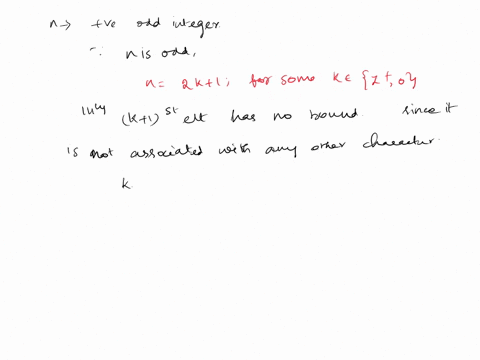 n → +ve odd integer.
∵ n is odd,
n = 2k+1; for some k ∈ {Z⁺, 0}
(k+1)ˢᵗ elt has no bound. since it
is not associated with any other character.
k